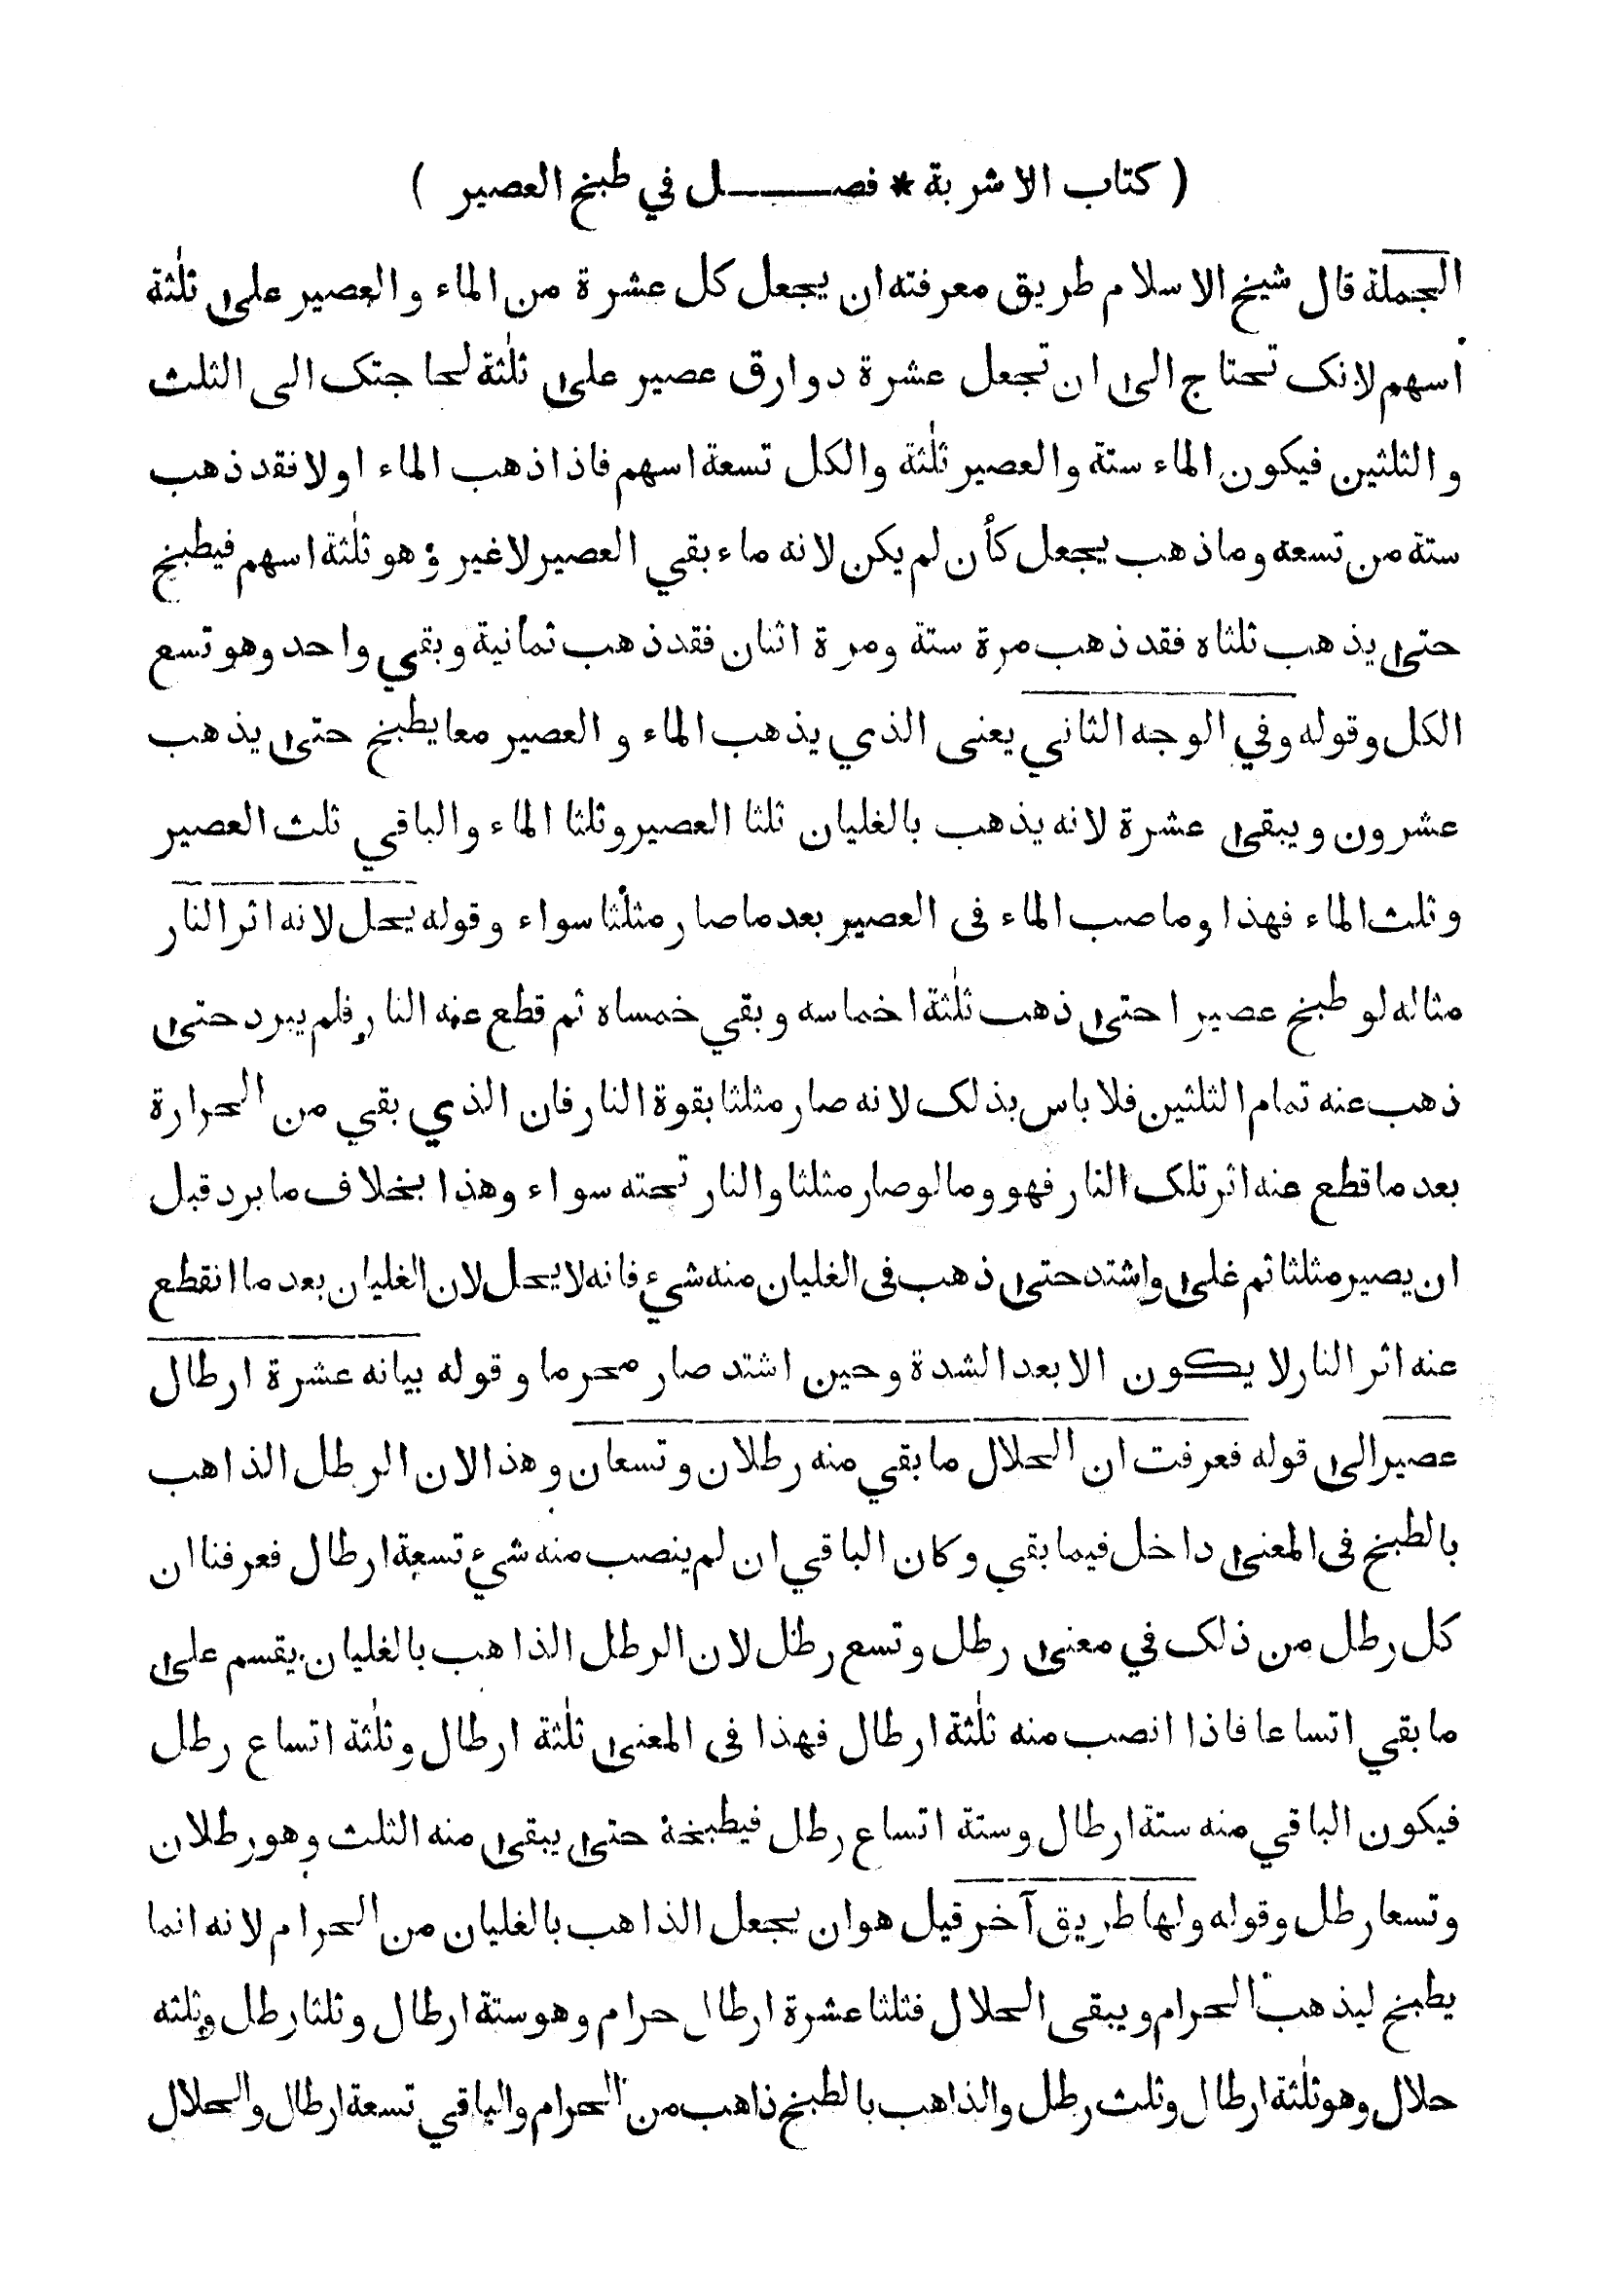 ( كتاب الاشربة * فصــــل في طبخ العصير )
الجملة قال شيخ الاسلام طريق معرفته ان يجعل كل عشرة من الماء والعصير على ثلٰثة
أسهم لانك تحتاج الى ان تجعل عشرة دوارق عصير على ثلٰثة لحاجتك الى الثلث
والثلثين فيكون الماء ستة والعصير ثلٰثة والكل تسعة اسهم فاذا ذهب الماء اولا فقد ذهب
ستة من تسعه وما ذهب يجعل كأن لم يكن لانه ماء بقي العصير لا غير وهو ثلٰثة اسهم فيطبخ
حتى يذهب ثلثاه فقد ذهب مرة ستة ومرة اثنان فقد ذهب ثمانية وبقي واحد وهو تسع
الكل وقوله وفي الوجه الثاني يعنى الذي يذهب الماء والعصير معا يطبخ حتى يذهب
عشرون ويبقى عشرة لانه يذهب بالغليان ثلثا العصير وثلثا الماء والباقي ثلث العصير
وثلث الماء فهذا وما صب الماء فى العصير بعد ما صار مثلثا سواء وقوله يحل لانه اثر النار
مثاله لو طبخ عصيرا حتى ذهب ثلٰثة اخماسه وبقي خمساه ثم قطع عنه النار فلم يبرد حتى
ذهب عنه تمام الثلثين فلا باس بذلك لانه صار مثلثا بقوة النار فان الذي بقي من الحرارة
بعد ما قطع عنه اثر تلك النار فهو وما لو صار مثلثا والنار تحته سواء وهذا بخلاف ما برد قبل
ان يصير مثلثا ثم غلى واشتد حتى ذهب فى الغليان منه شيء فانه لا يحل لان الغليان بعد ما انقطع
عنه اثر النار لا يكون الا بعد الشدة وحين اشتد صار محرما وقوله بيانه عشرة ارطال
عصير الى قوله فعرفت ان الحلال ما بقي منه رطلان وتسعان وهذا لان الرطل الذاهب
بالطبخ فى المعنى داخل فيما بقي وكان الباقي ان لم ينصب منه شيء تسعة ارطال فعرفنا ان
كل رطل من ذلك في معنى رطل وتسع رطل لان الرطل الذاهب بالغليان يقسم على
ما بقي اتساعا فاذا انصب منه ثلٰثة ارطال فهذا فى المعنى ثلٰثة ارطال وثلٰثة اتساع رطل
فيكون الباقي منه ستة ارطال وستة اتساع رطل فيطبخة حتى يبقى منه الثلث وهو رطلان
وتسعا رطل وقوله ولها طريق آخر قيل هو ان يجعل الذاهب بالغليان من الحرام لانه انما
يطبخ ليذهب الحرام ويبقى الحلال فثلثا عشرة ارطال حرام وهو ستة ارطال وثلثا رطل وثلثه
حلال وهو ثلٰثة ارطال وثلث رطل والذاهب بالطبخ ذاهب من الحرام والباقي تسعة ارطال والحلال